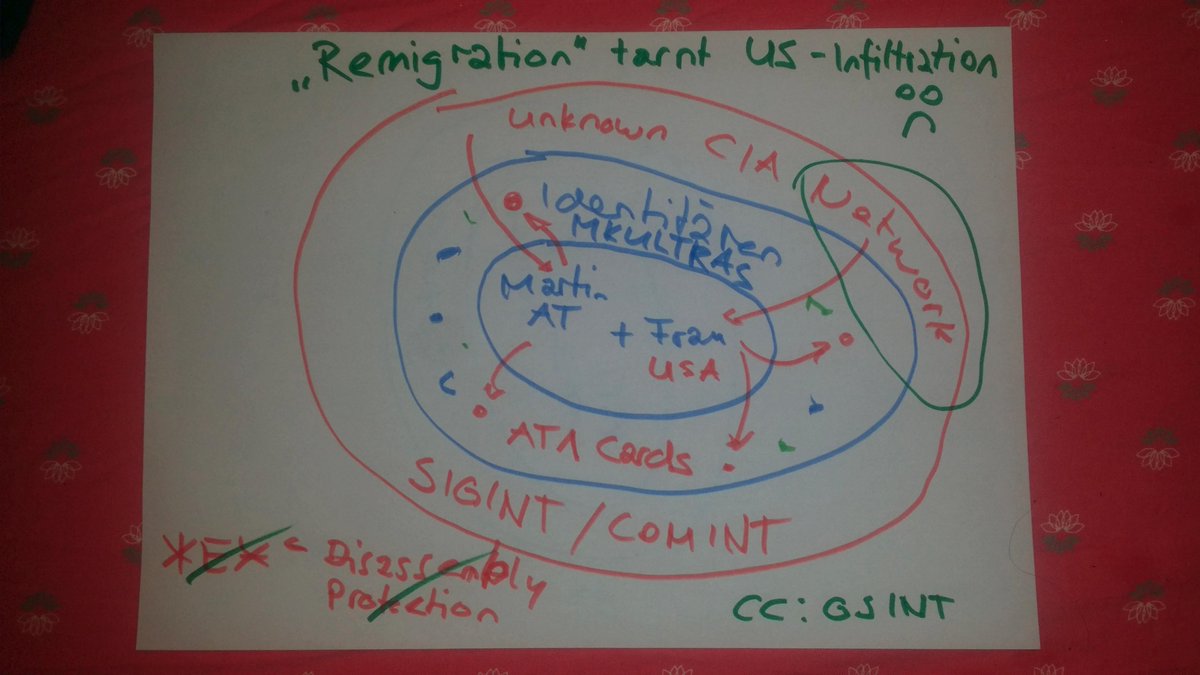 „Remigration“ tarnt US-Infiltration
unknown CIA Network
Identitären
MKULTRAS
Martin
AT
+ Frau
USA
ATA Cards
SIGINT / COMINT
*E* < Disassembly
Protection
CC: GSINT